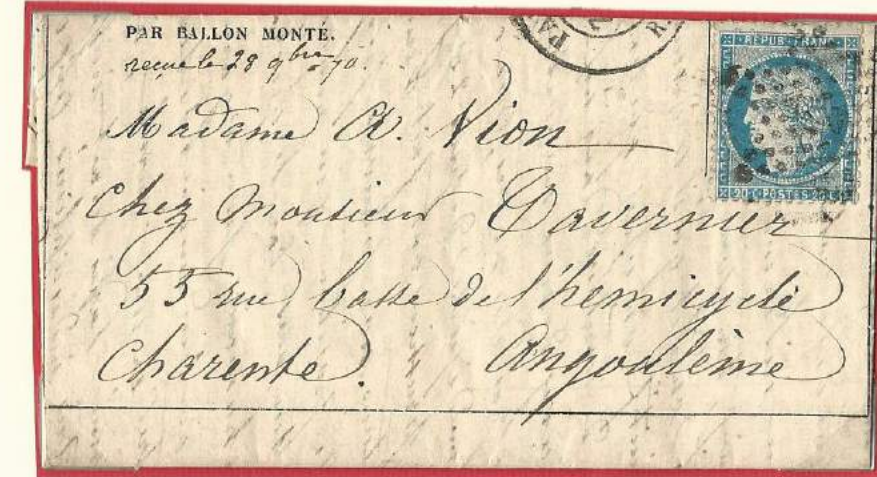 PAR BALLON MONTÉ.
reçue le 28 9bre 70.
PA
R.
REPUB. FRANC
20 C. POSTES 20 C.
Madame A. Vion
Chez Monsieur Tavernier
55 rue basse de l'hemicycle
Charente. Angoulème